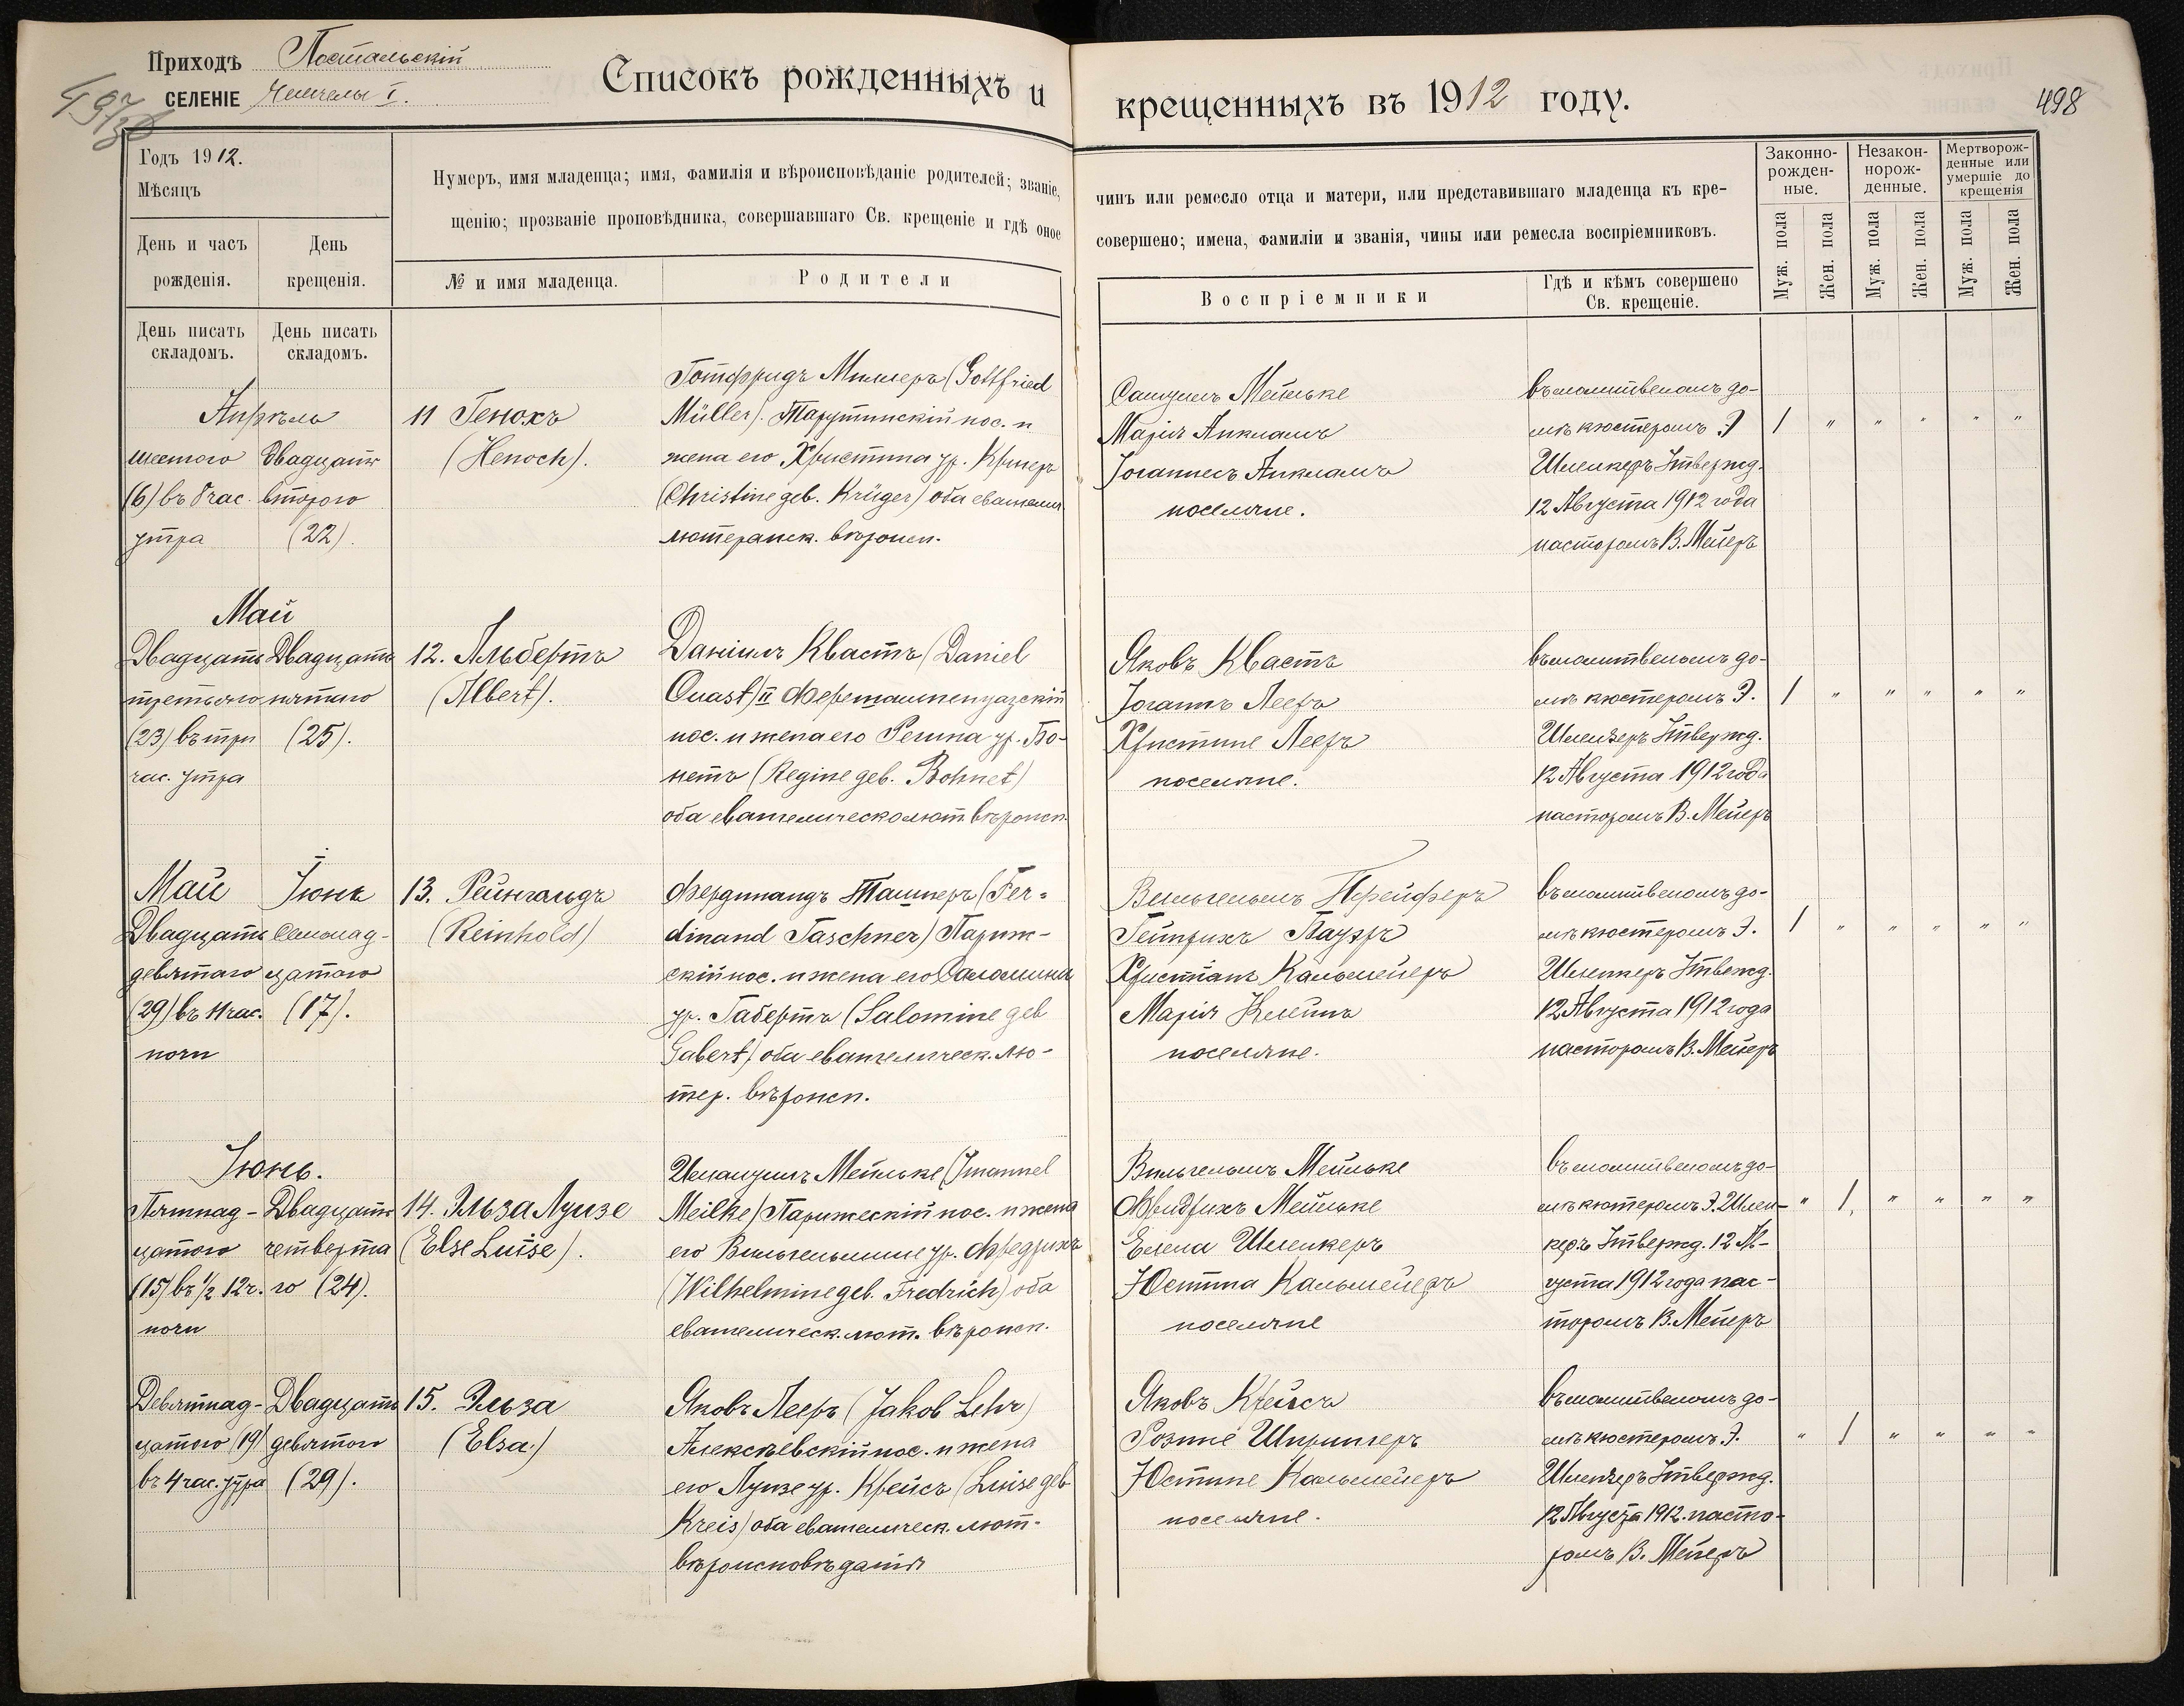 Приходъ Постальскій
СЕЛЕНІЕ Чемчелы I.
Списокъ рожденныхъ и крещенныхъ въ 1912 году.
498
Годъ 1912.
Мѣсяцъ
День и часъ рожденія.
День крещенія.
День писать складомъ.
День писать складомъ.
Нумеръ, имя младенца; имя, фамилія и вѣроисповѣданіе родителей; званіе, чинъ или ремесло отца и матери, или представившаго младенца къ кре-
щенію; прозваніе проповѣдника, совершавшаго Св. крещеніе и гдѣ оное совершено; имена, фамиліи и званія, чины или ремесла воспріемниковъ.
№ и имя младенца.
Родители
Воспріемники
Гдѣ и кѣмъ совершено Св. крещеніе.
Законно-рожден-ные.
Незакон-норож-денные.
Мертворож-денные или умершіе до крещенія
Муж. пола
Жен. пола
Муж. пола
Жен. пола
Муж. пола
Жен. пола
Апрѣль
шестого
(6) въ 8 час.
утра
Двадцать
второго
(22).
11 Генохъ
(Henoch).
Готфридъ Миллеръ (Gottfried
Müller). Тарутинскій пос. и
жена его Христина ур. Кригеръ
(Christine geb. Krüger) оба евангели
лютеранск. вѣроисп.
Самуилъ Мейльке
Марія Анкламъ
Іоганнесъ Анкламъ
поселяне.
въ молитвеномъ до-
мѣ кюстеромъ Э
Шленкеръ Утвержд.
12 Августа 1912 года
пасторомъ В. Мейеръ
1 " " " " "
Май
Двадцать
третьяго
(23) въ три
час. утра
Двадцать
пятого
(25).
12. Альбертъ
(Albert).
Даніилъ Квастъ (Daniel
Quast) II Фершампенуазскій
пос. и жена его Регина ур. Бо-
нетъ (Regine geb. Bohnet)
оба евангелическо лют. вѣроисп.
Яковъ Квастъ
Іоганнъ Лееръ
Христине Лееръ
поселяне.
въ молитвеномъ до-
мѣ кюстеромъ Э.
Шленкеръ Утвержд.
12 Августа 1912 года
пасторомъ В. Мейеръ
1 " " " " "
Май
Двадцать
девятаго
(29) въ 11 час.
ночи
Іюня
Семнад-
цатого
(17).
13. Рейнгольдъ
(Reinhold)
Фердинандъ Ташнеръ (Fer=
dinand Taschner) Париж-
скій пос. и жена его Саломина
ур. Габертъ (Salomine geb
Gabert) оба евангелическ. лю-
тер. вѣроисп.
Вильгельмъ Прейферъ
Гейнрихъ Бауэръ
Христіанъ Кальмейеръ
Марія Клейнъ
поселяне.
въ молитвеномъ до-
мѣ кюстеромъ Э.
Шленкеръ Утвежд.
12 Августа 1912 года
пасторомъ В. Мейеръ
1 " " " " "
Іюнь.
Пятнад-
цатого
(15) въ 1/2 12 ч.
ночи
Двадцать
четверта
го (24).
14. Эльза Луизе
(Else Luise).
Имануилъ Мейльке (Imanuel
Meilke) Парижескій пос. и жена
его Вильгельмине ур. Фредрихъ
(Wilhelmine geb. Fredrich) оба
евангелическ. лют. вѣроисп.
Вильгельмъ Мейльке
Фридрихъ Мейльке
Елена Шленкеръ
Юстина Кальмейеръ
поселяне
въ молитвеномъ до-
мѣ кюстеромъ Э. Шлен-
керъ Утвержд. 12 А-
густа 1912 года пас-
торомъ В. Мейеръ
" 1. " " " "
Девятнад-
цатого (19)
въ 4 час. утра
Двадцать
девятого
(29).
15. Эльза
(Elsa.)
Яковъ Лееръ (Jakob Lehr)
Алексѣевскій пос. и жена
его Луизе ур. Крейсъ (Luise geb
Kreis) оба евангелическ. лют.
вѣроисповѣданія
Яковъ Крейсъ
Розине Шпрингеръ
Юстине Кальмейеръ
поселяне.
въ молитвеномъ до-
мѣ кюстеромъ Э.
Шленкеръ Утвержд.
12 Августа 1912. пасто-
ромъ В. Мейеръ
" 1 " " " "